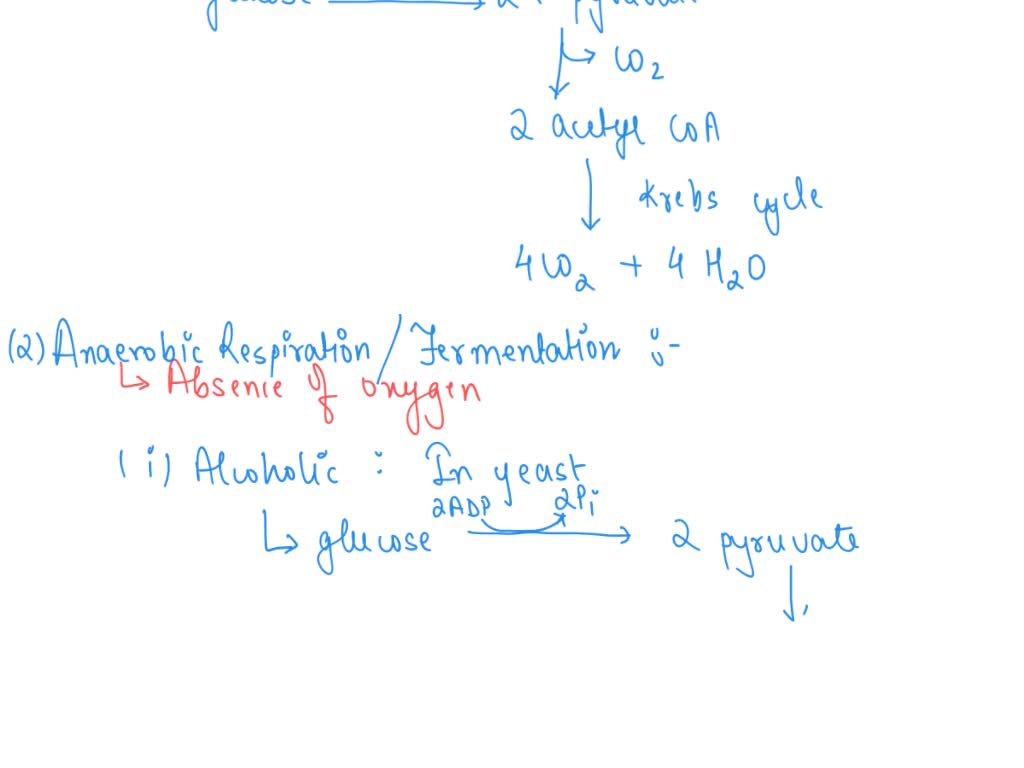 CO2
2 acetyl CoA
Krebs cycle
4CO2 + 4 H2O
(2) Anaerobic Respiration / Fermentation :-
↳ Absence of oxygen
(i) Alcoholic : In yeast
2ADP 2Pi
↳ glucose → 2 pyruvate